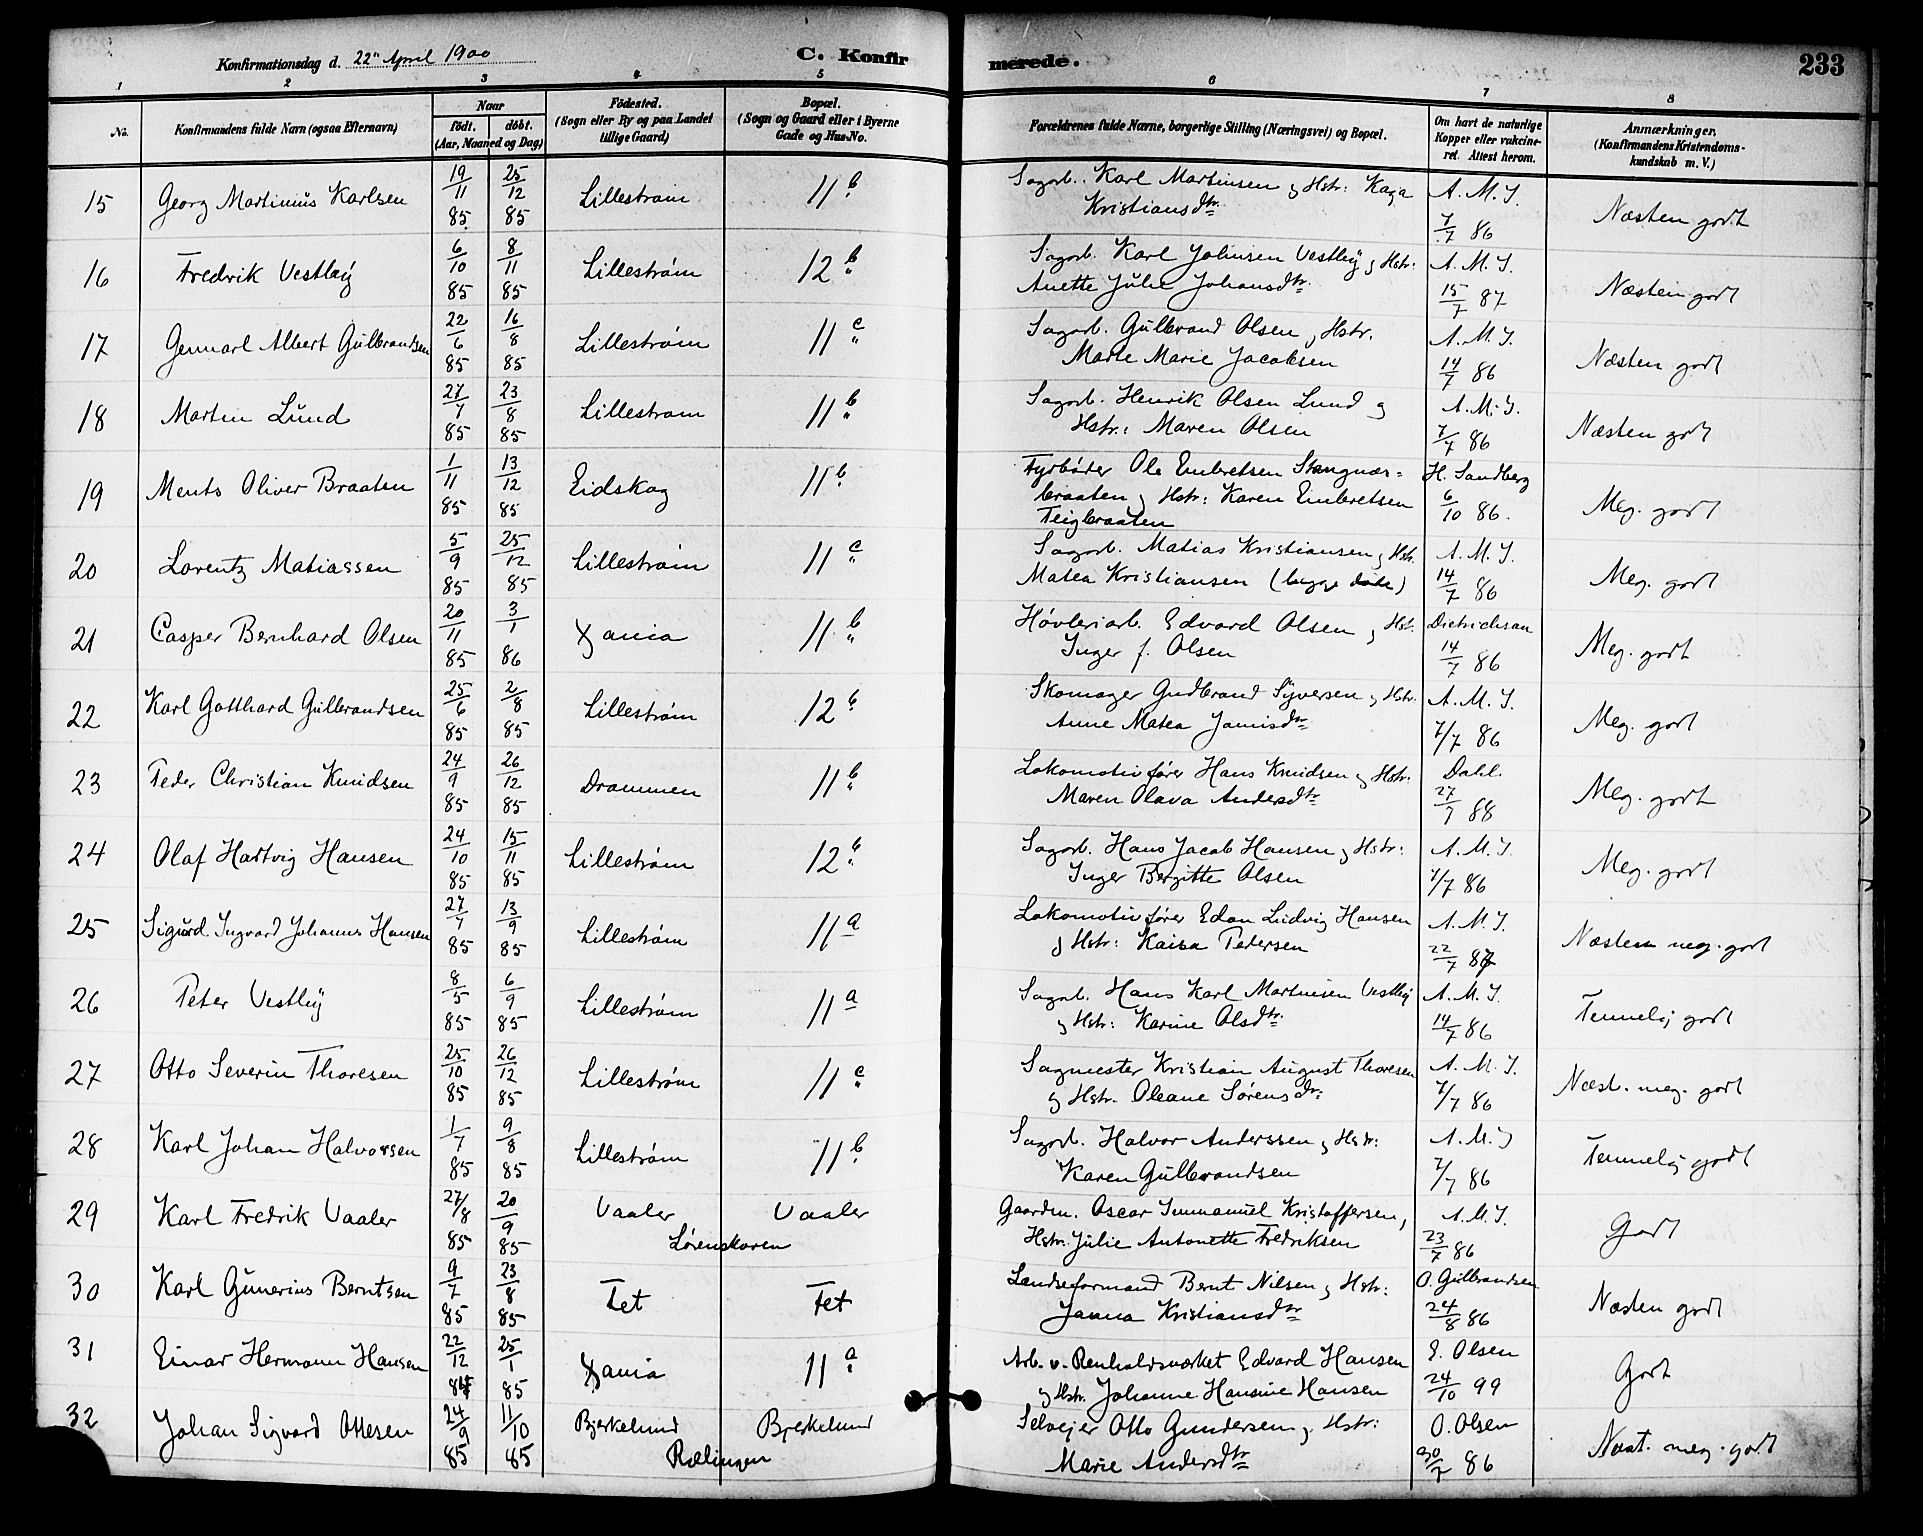 Konfirmationsdag d. 22" April 1900 C. Konfirmerede. 233
1 2 3 4 5 6 7 8
No. Konfirmandens fulde Navn (ogsaa Efternavn) Naar födt. döbt. (Aar, Maaned og Dag) Födested. (Sogn eller By og paa Landet tillige Gaard) Bopæl. (Sogn og Gaard eller i Byerne Gade og Hus-No. Forældrenes fulde Navne, borgerlige Stilling (Næringsvei) og Bopæl. Om havt de naturlige Kopper eller vakcineret. Attest herom. Anmærkninger. (Konfirmandens Kristendomskundskab m. V.)
15 Georg Martinius Karlsen 19/11 85 25/12 85 Lillestrøm 11 b Sagarb. Karl Martinsen og Hstr: Kaja Kristiansdtr. A. M. J. 7/7 86 Næsten godt
16 Fredrik Vestby 6/10 85 8/11 85 Lillestrøm 12 b Sagarb. Karl Johnsen Vestby og Hstr: Anette Julie Johansdtr. A. M. J. 15/7 87 Næsten godt
17 Gennarl Albert Gulbrandsen 22/6 85 16/8 85 Lillestrøm 11 c Sagarb. Gulbrand Olsen og Hstr. Marte Marie Jacobsen A. M. J. 14/7 86 Næsten godt
18 Martin Lund 27/7 85 23/8 85 Lillestrøm 11 b Sagarb. Henrik Olsen Lund og Hstr: Maren Olsen A. M. J. 7/7 86 Næsten godt
19 Ments Oliver Braaten 1/11 85 13/12 85 Eidskog 11 b Fyrbøder Ole Embretsen Stangnæsbraaten og Hstr: Karen Embretsen Teigbraaten H. Sandberg 6/10 86. Meg. godt
20 Lorentz Matiassen 5/9 85 25/12 85 Lillestrøm 11 c Sagarb. Matias Kristiansen og Hstr Matea Kristiansen (begge døde) A. M. J. 14/7 86 Meg. godt
21 Casper Bernhard Olsen 20/11 85 3/1 86 Xania 11 b Høvleriarb. Edvard Olsen og Hst. Inger f. Olsen Dietrichson 14/7 86 Meg. godt
22 Karl Gotthard Gulbrandsen 25/6 85 2/8 85 Lillestrøm 12 b Skomager Gudbrand Syversen og Hstr. Anne Matea Jamisdtr A. M. J. 7/7 86 Meg. godt
23 Peder Christian Knudsen 24/9 85 26/12 85 Drammen 11 b Lokomotivfører Hans Knudsen og Hstr: Maren Olava Andersdtr Dahl. 27/7 88 Meg. godt
24 Olaf Hartvig Hansen 24/10 85 15/11 85 Lillestrøm 12 b Sagarb. Hans Jacob Hansen og Hstr: Inger Bergitte Olsen A. M. J. 7/7 86 Meg. godt
25 Sigurd Ingvard Johannes Hansen 27/7 85 13/9 85 Lillestrøm 11 a Lokomotivfører Edon Ludvig Hansen og Hstr: Kaisa Pedersen A. M. J. 22/7 87 Næsten meg. godt
26 Peter Vestby 8/5 85 6/9 85 Lillestrøm 11 a Sagarb. Hans Karl Martinsen Vestby og Hstr: Karine Olsdtr. A. M. J. 14/7 86 Temmelig godt
27 Otto Severin Thoresen 25/10 85 26/12 85 Lillestrøm 11 c Sagmester Kristian August Thoresen og Hstr. Oleane Sørensdr: A. M. J. 7/7 86 Næst. meg. godt
28 Karl Johan Halvorsen 1/7 85 9/8 85 Lillestrøm 11 b Sagarb. Halvor Anderssen og Hstr: Karen Gulbrandsen A. M. J 7/7 86 Temmelig godt
29 Karl Fredrik Vaaler 27/8 85 20/9 85 Vaaler Vaaler Lørenskoven Gaardm. Oscar Immanuel Kristoffersen, Hstr. Julie Antonette Fredriksen A. M. J. 23/7 86 Godt
30 Karl Gunerius Berntsen 9/7 85 23/8 85 Fet Fet Landseformand Bernt Nilsen og Hstr: Janna Kristiansdtr O. Gulbrandsen 24/8 86 Næsten godt
31 Einar Hermann Hansen 22/12 84 25/1 85 Xania 11 a Arb. v. Renholdsværket Edvard Hansen og Hstr. Johanne Hansine Hansen E. Olsen 24/10 99 Godt
32 Johan Sigvard Ottesen 24/9 85 11/10 85 Bjerkelund Bjerkelund Rælingen Selvejer Otto Gundersen og Hstr: Marie Andersdtr O. Olsen 30/7 86 Næst. meg. godt